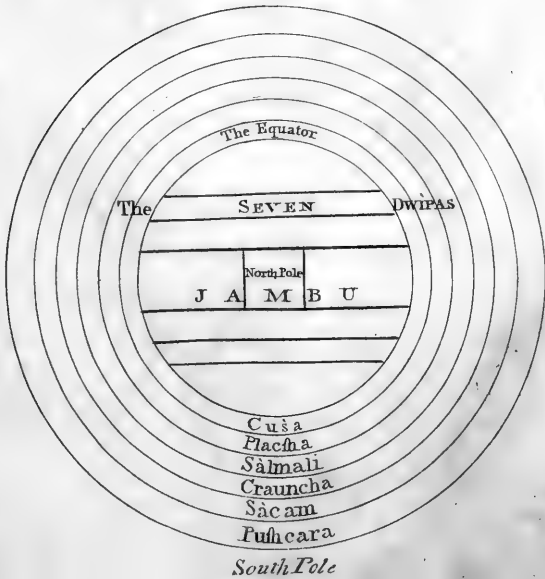 The Equator
The SEVEN DWÌPAS
North Pole
J A M B U
Cuṡa
Placſha
Sàlmali
Crauncha
Sàcam
Puſhcara
South Pole